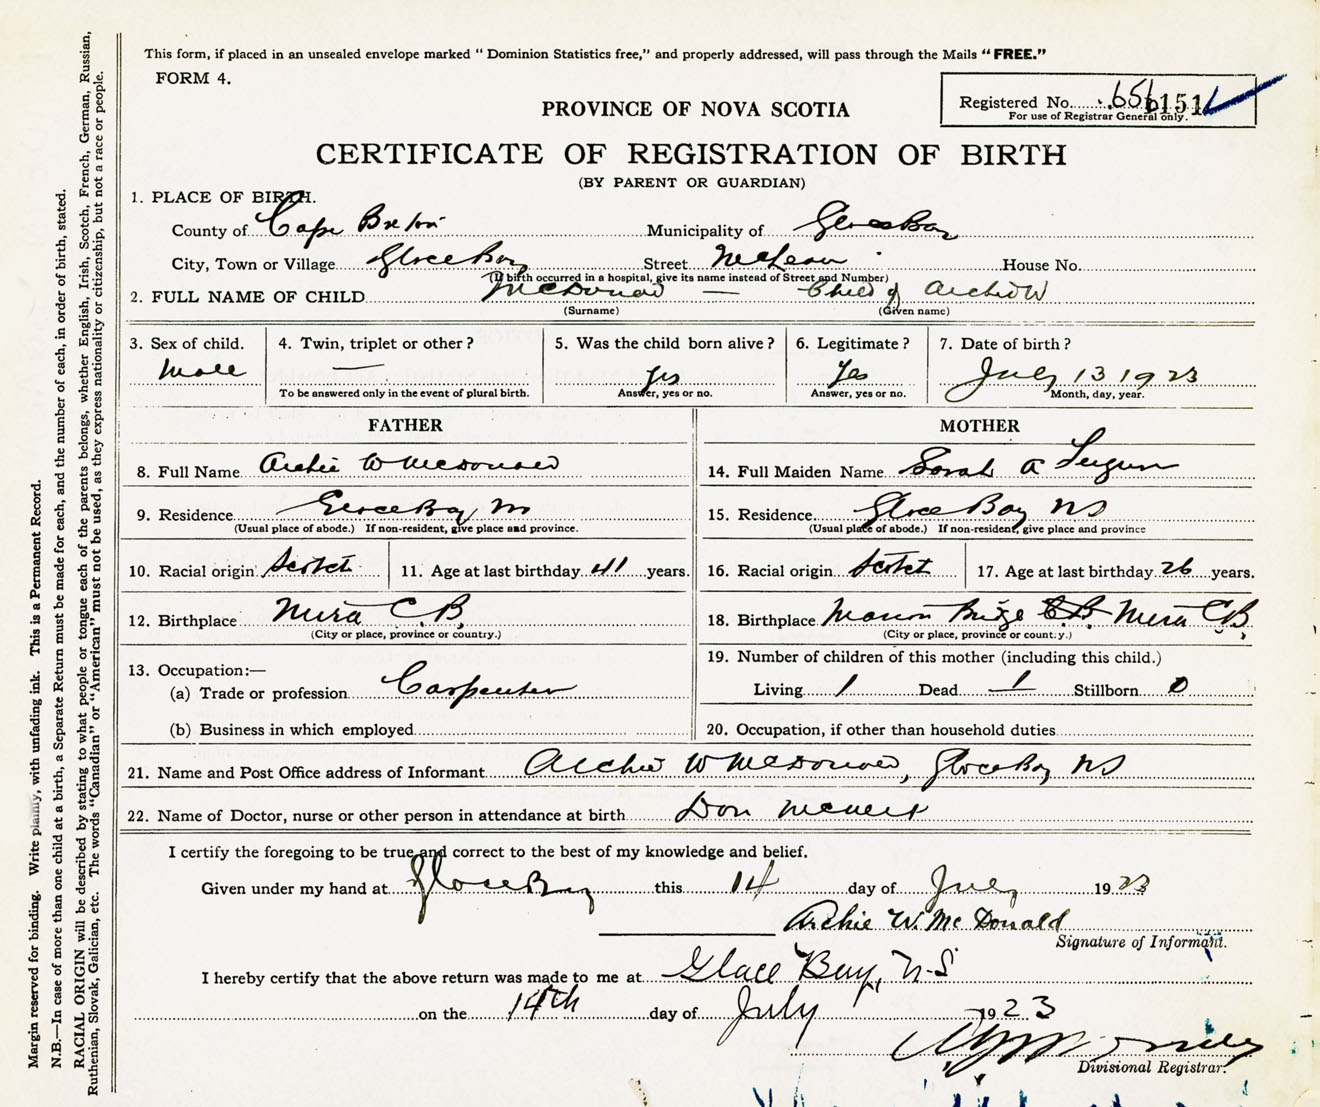 This form, if placed in an unsealed envelope marked “ Dominion Statistics free,” and properly addressed, will pass through the Mails “ FREE.”
FORM 4.
Registered No. 151
For use of Registrar General only.
PROVINCE OF NOVA SCOTIA
CERTIFICATE OF REGISTRATION OF BIRTH
(BY PARENT OR GUARDIAN)
1. PLACE OF BIRTH.
County of Cape Breton Municipality of Glace Bay
City, Town or Village Glace Bay Street McLean House No.
(If birth occurred in a hospital, give its name instead of Street and Number)
2. FULL NAME OF CHILD McDonald — Child of Archie W
(Surname) (Given name)
3. Sex of child. 4. Twin, triplet or other ? 5. Was the child born alive ? 6. Legitimate ? 7. Date of birth ?
Male — Yes Yes July 13 1923
To be answered only in the event of plural birth. Answer, yes or no. Answer, yes or no. Month, day, year.
FATHER
8. Full Name Archie W McDonald
9. Residence Glace Bay, NS
(Usual place of abode.) If non-resident, give place and province.
10. Racial origin Scotch 11. Age at last birthday 41 years.
12. Birthplace Mira C.B.
(City or place, province or country.)
13. Occupation:—
(a) Trade or profession Carpenter
(b) Business in which employed
MOTHER
14. Full Maiden Name Sarah A
15. Residence Glace Bay NS
(Usual place of abode.) If non-resident, give place and province
16. Racial origin Scotch 17. Age at last birthday 26 years.
18. Birthplace Marion Bridge C.B. Mira C.B.
(City or place, province or country.)
19. Number of children of this mother (including this child.)
Living 1 Dead 1 Stillborn 0
20. Occupation, if other than household duties
21. Name and Post Office address of Informant Archie W McDonald, Glace Bay NS
22. Name of Doctor, nurse or other person in attendance at birth
I certify the foregoing to be true and correct to the best of my knowledge and belief.
Given under my hand at Glace Bay this 14 day of July 1923
Archie W. McDonald
Signature of Informant.
I hereby certify that the above return was made to me at Glace Bay, N-S
on the 14th day of July 1923
Divisional Registrar.
Margin reserved for binding. Write plainly, with unfading ink. This is a Permanent Record.
N.B.—In case of more than one child at a birth, a Separate Return must be made for each, and the number of each, in order of birth, stated.
RACIAL ORIGIN will be described by stating to what people or tongue each of the parents belongs, whether English, Irish, Scotch, French, German, Russian,
Ruthenian, Slovak, Galician, etc. The words “Canadian” or “American” must not be used, as they express nationality or citizenship, but not a race or people.